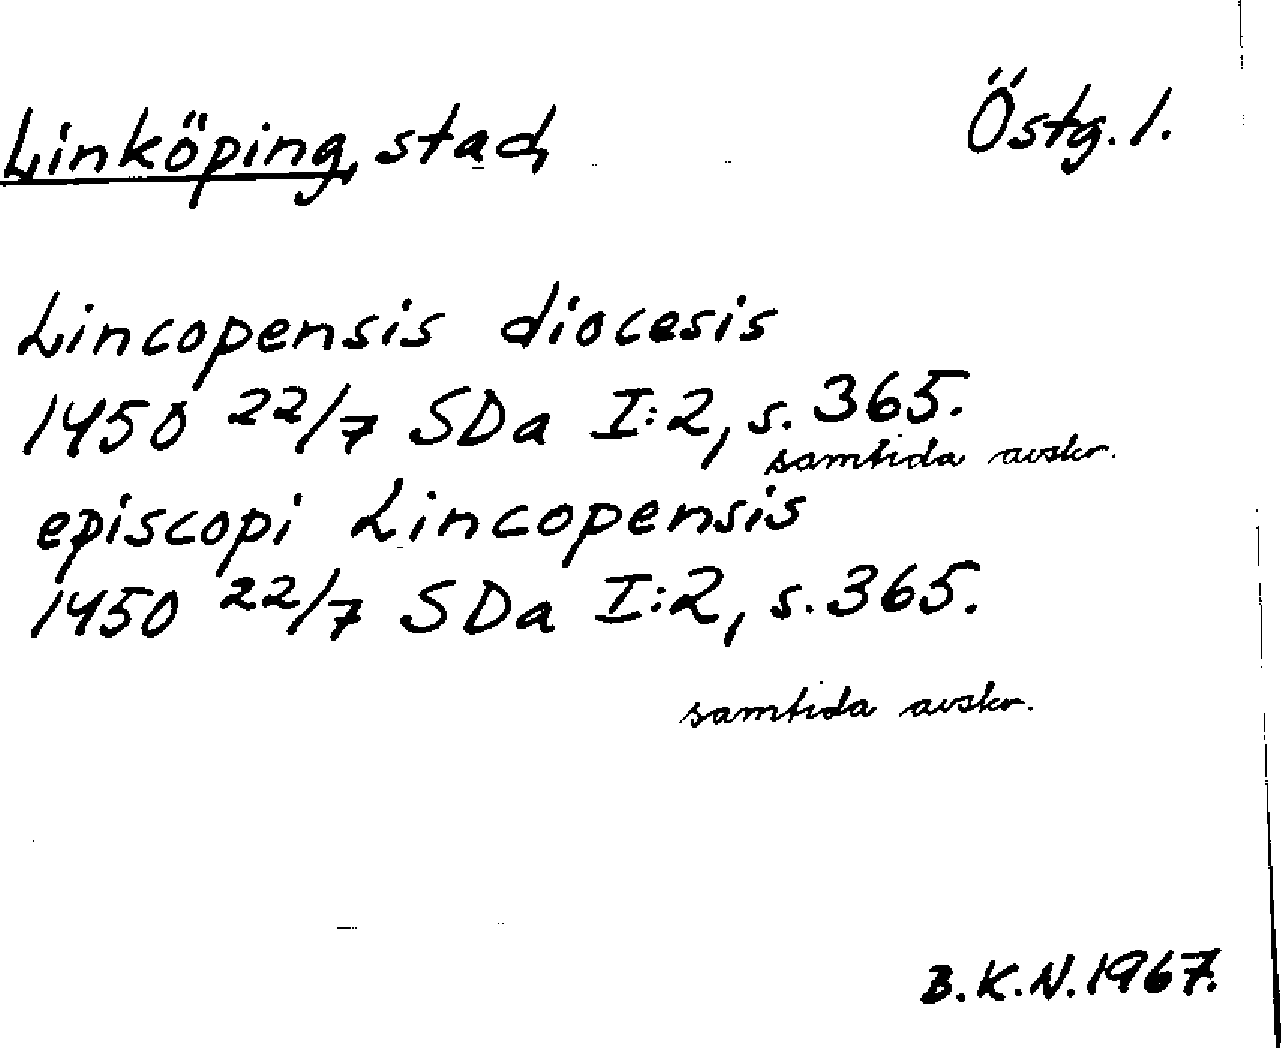 Linköping, stad Östg. l.
Lincopensis diocesis
1450 22/7 SDa I:2, s. 365.
samtida avskr.
episcopi Lincopensis
1450 22/7 SDa I:2, s. 365.
samtida avskr.
B.K.N. 1967.